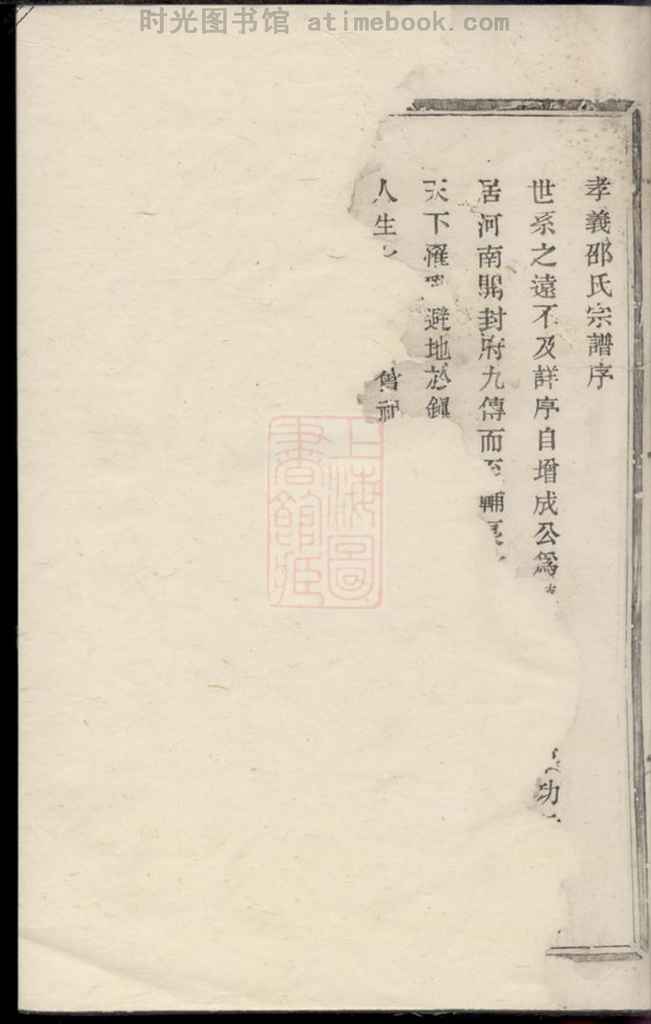 时光图书馆 atimebook.com
孝義邵氏宗譜序
世系之遠不及詳序自增成公爲
功
居河南開封府九傳而至輔
天下 避地於鎮
人生
曾祠
上海圖書館藏